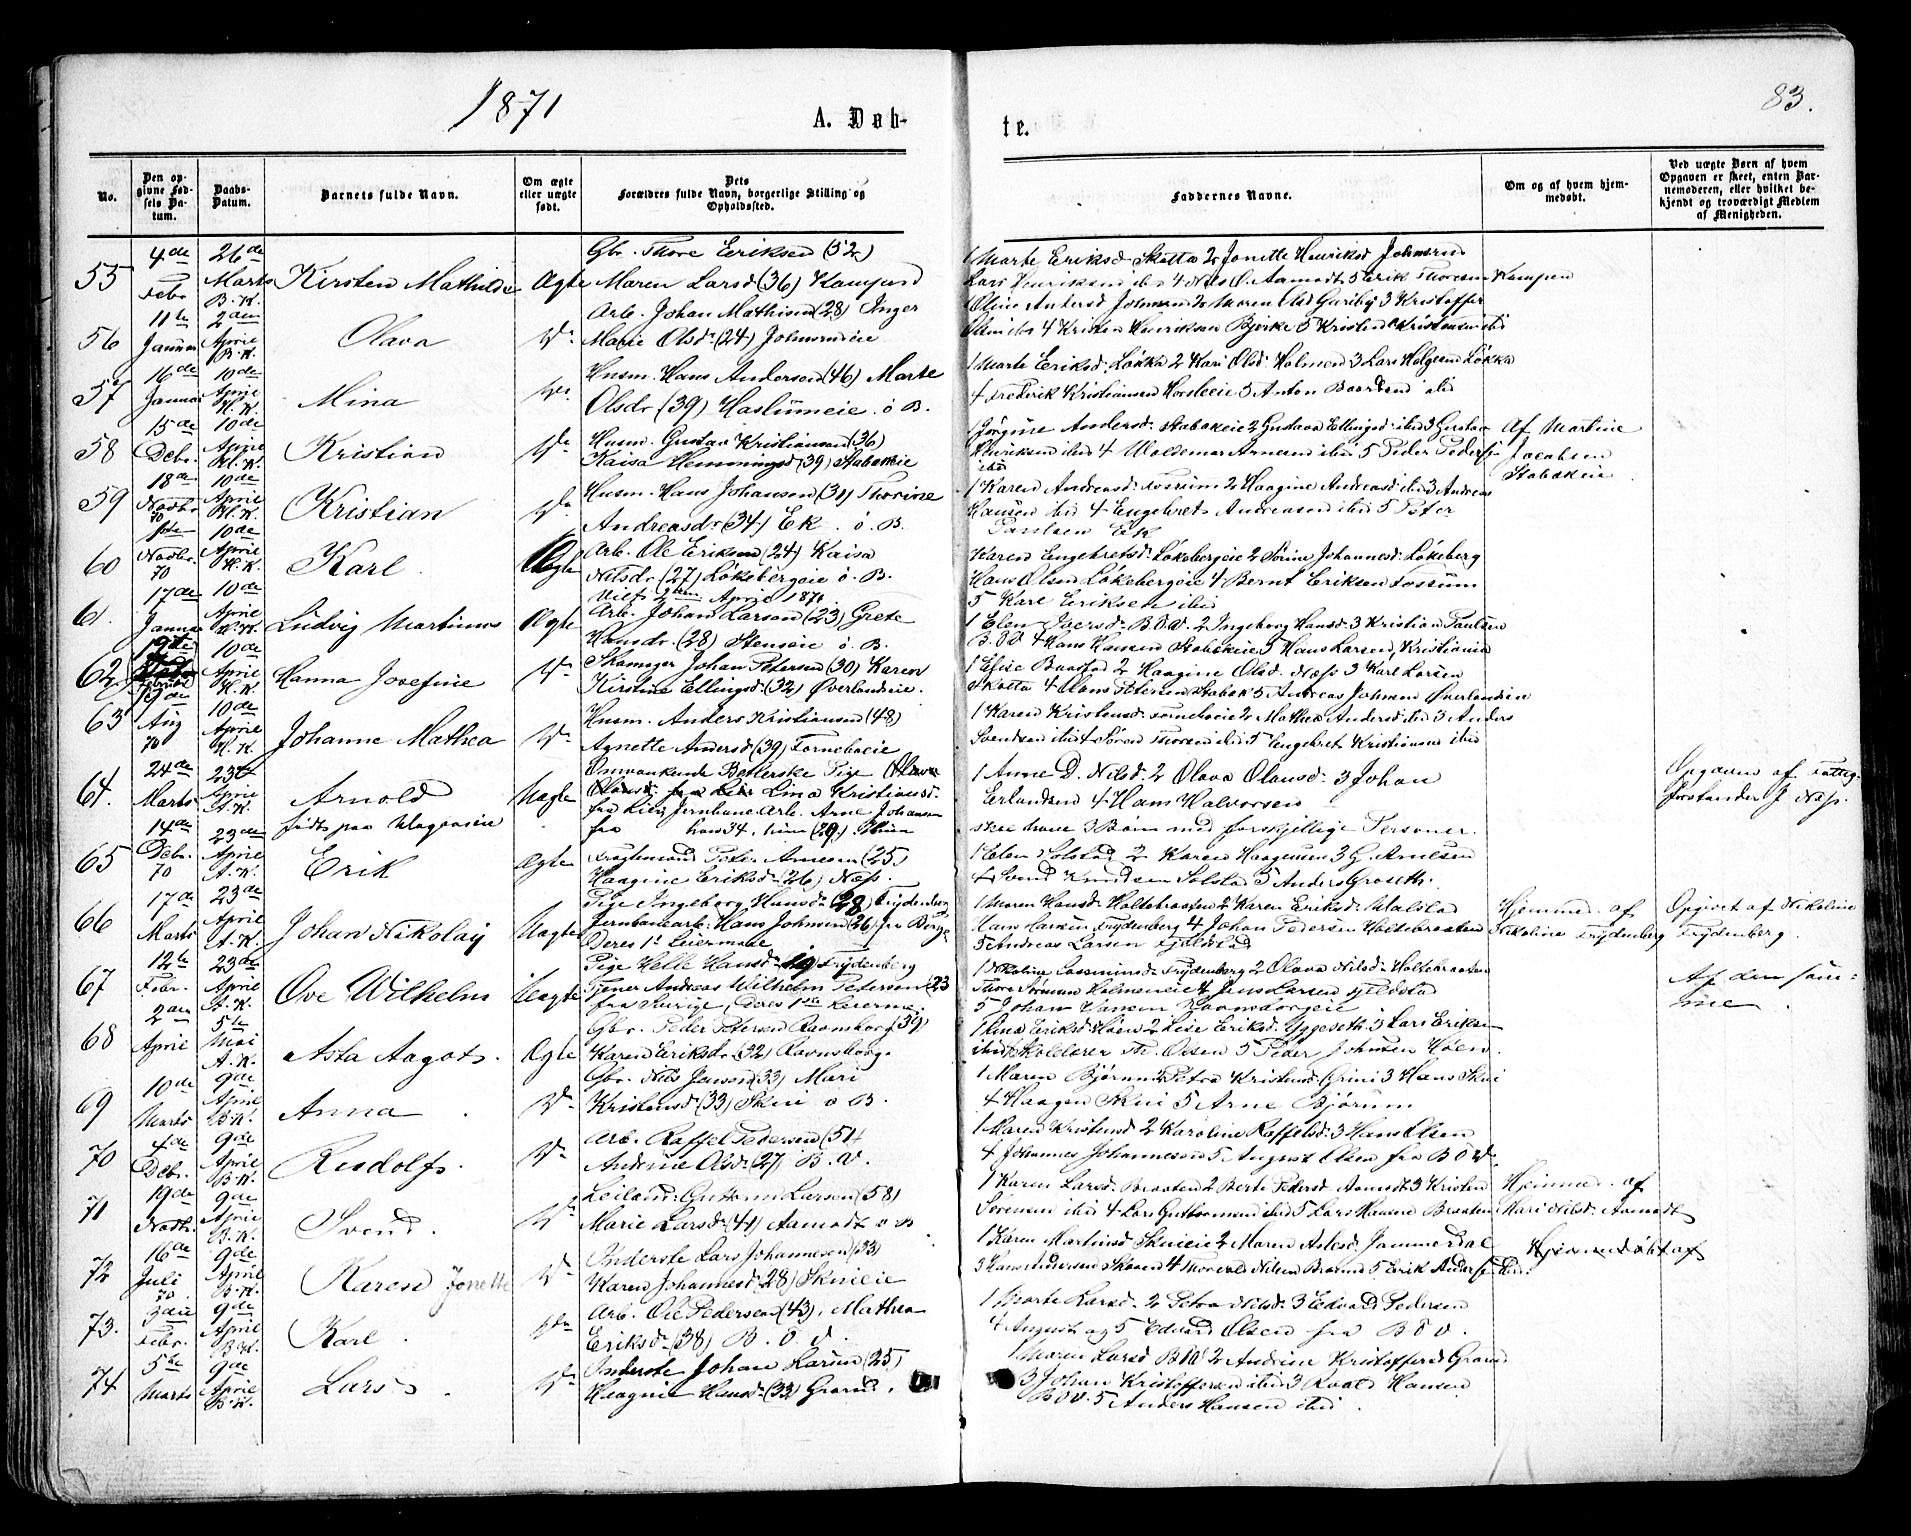 1871
A. Døb-
te.
83.
No.
Den op-
givne Fød-
sels Da-
tum.
Daabs-
Datum.
Barnets fulde Navn.
Om ægte
eller uægte
født.
Dets
Forældres fulde Navn, borgerlige Stilling og
Opholdssted.
Faddernes Navne.
Om og af hvem hjem-
medøbt.
Ved uægte Børn af hvem
Opgaven er skeet, enten Bar-
nemoderen, eller hvilket be-
kjendt og troværdigt Medlem
af Menigheden.
55
4de
Febr
26de
Marts
B. K.
Kirsten Mathilde
Ægte
Gbr. Thore Eriksen (52)
Maren Larsd (36) Kampen
1 Marte Eriksd Skotta 2 Jonette Henriksd Johnsrud
Lars Henriksen ibid 4 Nils O. Aamodt 5 Erik Thoresen Kampen
56
11te
Januar
2den
April
B. K.
Olava
Do
Arb. Johan Mathisen (28) Inger
Marie Olsd (24) Johnsrudeie
Oline Andersd Johnsrud 2 Maren Olsd Guriby 3 Kristoffer
Olsen ibid 4 Kristen Henriksen Bjerke 5 Kristen Kristensen ibid
57
16de
Januar
10de
April
H. K.
Mina
Do
Husm. Hans Andersen (46) Marte
Olsdr (39) Haslumeie ø B.
1 Marte Eriksd Løkka 2 Kari Olsd Holmen 3 Lars Helgesen Løkka
4 Fredrik Kristiansen Horsleeie 5 Anton Baarsrud ibid
58
15de
Debr.
10de
April
H. K.
Kristian
Do
Husm. Gustav Kristiansen (36)
Kaisa Hemmingsd (39) Stabækeie
1 Jørgine Andersd Stabækeie 2 Gustava Ellingsd ibid 3 Gustav
Henriksen ibid 4 Woldemar Arnesen ibid 5 Peder Peders
ibid
Af Martine
Jacobsen
Stabækeie
59
18de
Novbr
70
10de
April
H. K.
Kristian
Do
Husm. Hans Johansen (31) Thorine
Andreasdr (34) Ek. ø. B.
1 Karen Andreasd Fossum 2 Haagine Andreasd ibid 3 Andreas
Hansen ibid 4 Engebret Andreasen ibid 5 Peter
Paulsen Ek
60
Novbr.
70
10de
April
H. K.
Karl
Ægte
Arb. Ole Eriksen (24) Kaisa
Nilsdr (27) Løkebergeie ø. B.
Vielse 2den April 1871
Karen Engebretsd Løkebergeie 2 Sørine Johannesd Løkeberg
Hans Olsen Løkebergeie 4 Bernt Eriksen Fossum
5 Karl Eriksen ibid
61
17de
Januar
10de
April
H. K.
Ludvig Martinus
Ægte
Arb. Johan Larsen (23) Grete
Hansdr (28) Stenseie ø. B.
1 Elen Iversd B.O.V. 2 Ingeborg Hansd 3 Kristian Paulsen
B.O.V 4 Hans Hansen Stabækeie 5 Hans Larsen, Kristiania
62
19de
10de
April
H. K.
Hanna Josefine
Do
Skomager Johan Petersen (30) Karen
Kirstine Ellingsd (32) Øverlandeie.
1 Elise Baastad 2 Haagine Olsd Næss 3 Karl Larsen
Skotta 4 Hans Petersen Stabæk 5 Andreas Johnsen Øverlandeie
63
19de
Aug
70
10de
April
H. K.
Johanne Mathea
Do
Husm. Anders Kristiansen (48)
Agnette Andersd (39) Forneboeie
1 Karen Kristensd Forneboeie 2 Mathea Andersd ibid 3 Anders
Svendsen ibid 4 Søren Thoresen ibid 5 Engebret Kristiansen ibid
64.
24de
Marts
23de
April
A. K.
Arnold
født paa Vlagenseie
Uægte
Omvankende Betlerske Pige
Lina Kristiansd
fra Lier, Jernbane arb. Arne Johansen
fra hans 34, hun (29).
1 Anne D. Nilsd 2 Olava Olausd 3 Johan
Erlandsen 4 Hans Halvorsen
skal have 3 Børn med forskjellige Personer.
Opgaven af Fattig-
forstander J. Næss.
65
14de
Debr.
70
23de
April
A. K.
Erik
Ægte
Peter Arnesen (25)
Haagine Eriksd (26) Næss.
1 Elen Solstad 2 Karen Haagensen 3 G. Arnesen
4 Svend Knudsen Solstad 5 Anders Groseth.
66
17de
Marts
23de
April
A. K.
Johan Nikolay
Uægte
Pige Ingeborg Hansd 28 Frydenberg
Jernbanearb. Hans Johnsen (26) fra Borge
Deres 1ste Leiermaal
1 Maren Hansd Holtebraaten 2 Karen Eriksd Valstad
Hans Larsen Frydenberg 4 Johan Pedersen Holtebraaten
5 Andreas Larsen Fjeldstad
Hjemmed. af
Nikoline Frydenberg
Opgivet af Nikoline
Frydenberg.
67
12te
Febr.
23de
April
A. K.
Ove Wilhelm
Uægte
Pige Helle Hansd 19 Frydenberg
Tjener Andreas Wilhelm Petersen (23
fra Sverige, Deres 1ste Leierm.
1 Nikoline Rasmusd Frydenberg 2 Olava Nilsd Holtebraaten
Thore Sørensen Holmeneie 4 Jens Larsen Fjeldstad
5 Johan Hansen Ravnsborgeie
Af den sam-
me.
68
2den
April
5te
Mai
A. K.
Asta Aagot.
Ægte
Gbr. Peder Petersen Ravnsborg (39)
Karen Eriksdr (32) Ravnsborg.
1 Lina Eriksd Høen 2 Lise Eriksd Yggeseth 3 Lars Eriksen
ibid 4 Skolelærer Th. Olsen 5 Peder Johnsen Høen.
69
10de
Marts
9de
April
B. K.
Anna
Do
Gbr. Nils Jensen (33) Mari
Kristensd (33) Skui ø B.
1 Maren Bjørum 2 Petra Kristensd Grini 3 Hans Skui
4 Haagen Skui 5 Arne Bjørum
70
4de
Debr.
9de
April
B. K.
Rudolf.
Do
Arb. Raffel Pedersen (51)
Andrine Olsd (27) B.V.
1 Maren Kristensd 2 Karoline Raffelsd 3 Hans Olsen
4 Johannes Johannesen 5 August Olsen fra B O V.
71
19de
Novbr.
9de
April
B. K.
Svend.
Do
Leiland. Guttorm Larsen (58)
Marie Larsd (41) Aamodt ø B
1 Karen Larsd Braaten 2 Berte Pedersd Aamodt 3 Kristen
Sørensen ibid 4 Lars Guttormsen ibid 5 Lars Hansen Braaten
Hjemmed. af
Mari Nilsd Aamodt
72
16de
Juli
70
9de
April
B. K.
Karen Jonette
Do
Inderste Lars Johannesen (33)
Karen Johannesd (28) Skuieie
1 Karen Martinsd Skuieie 2 Maren Aslesd Jammerdal
3 Hans Andersen Skaaen 4 Thorvald Nilsen Brenna 5 Erik Anders ibid.
Hjemmedøbt af
73.
3die
Febr.
9de
April
B. K.
Karl.
Do
Arb. Ole Pedersen (43). Mathea
Eriksd (38) B. O. V.
1 Marte Larsd 2 Petra Nilsd 3 Edvard Pedersen
4 August og 5 Edvard Olsen fra B O V.
74
5te
Marts
9de
April
B. K.
Lars.
Do
Inderste Johan Larsen (25)
Haagine Hansd (33) Grorud.
1 Maren Larsd B O V 2 Andrine Kristoffersd Grorud
3 Johan Kristoffersen ibid 3 Roald Hansen
B O V. 5 Anders Hansen ibid.